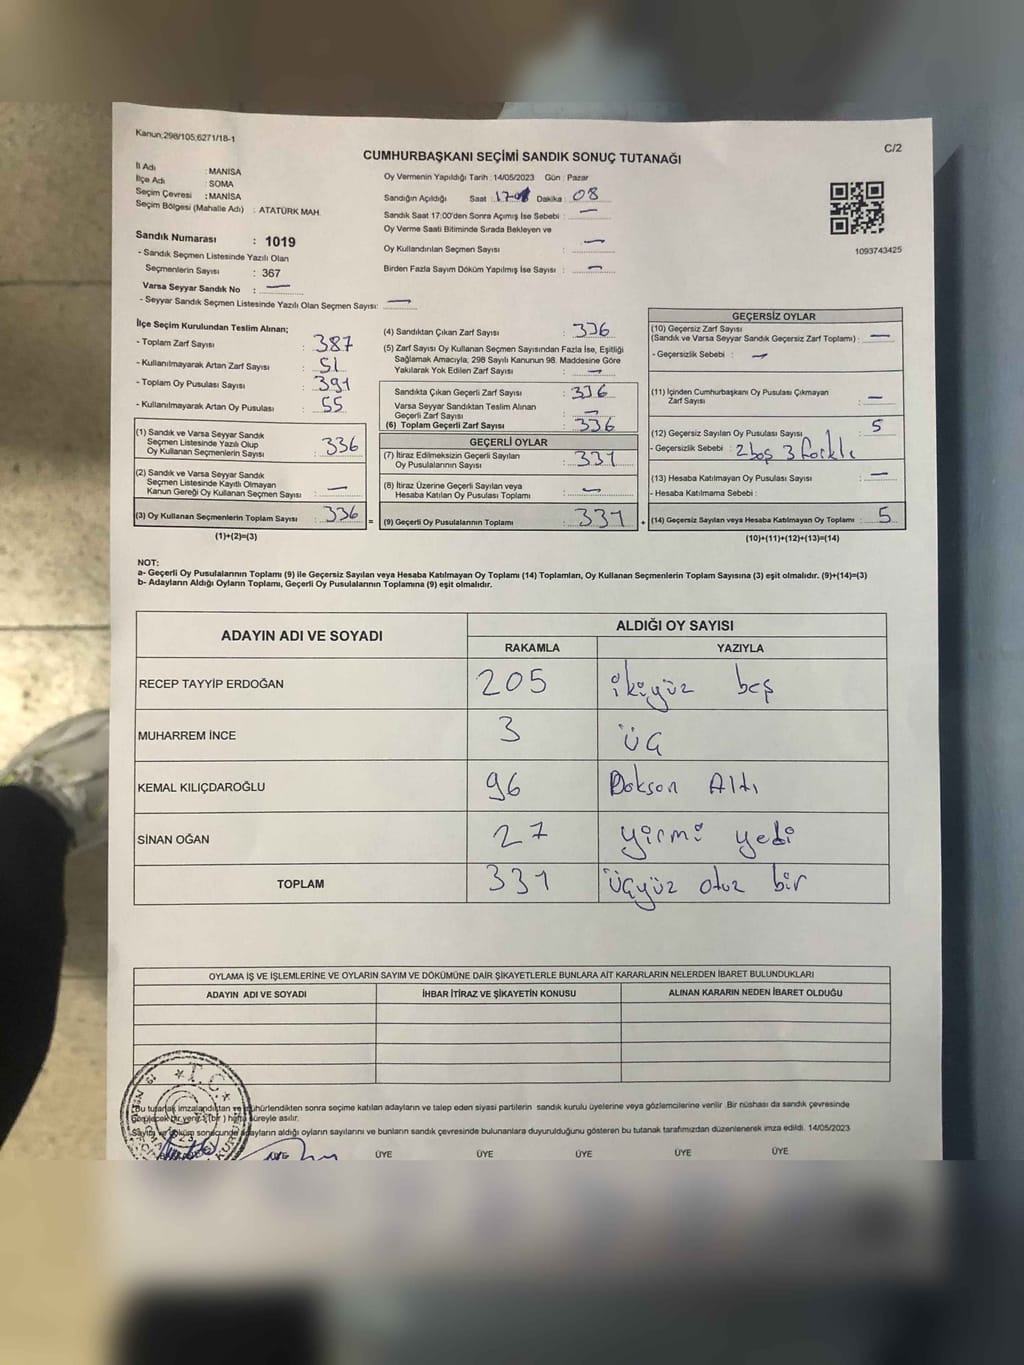 Kanun;298/105;6271/18-1
C/2
CUMHURBAŞKANI SEÇİMİ SANDIK SONUÇ TUTANAĞI
İl Adı : MANİSA
İlçe Adı : SOMA
Seçim Çevresi : MANİSA
Seçim Bölgesi (Mahalle Adı) : ATATÜRK MAH.
Sandık Numarası : 1019
- Sandık Seçmen Listesinde Yazılı Olan
Seçmenlerin Sayısı : 367
Varsa Seyyar Sandık No : —
- Seyyar Sandık Seçmen Listesinde Yazılı Olan Seçmen Sayısı: —
Oy Vermenin Yapıldığı Tarih : 14/05/2023 Gün : Pazar
Sandığın Açıldığı Saat : Dakika : 08
Sandık Saat 17:00'den Sonra Açımış İse Sebebi : —
Oy Verme Saati Bitiminde Sırada Bekleyen ve
Oy Kullandırılan Seçmen Sayısı : —
Birden Fazla Sayım Döküm Yapılmış İse Sayısı : —
1093743425
İlçe Seçim Kurulundan Teslim Alınan;
- Toplam Zarf Sayısı : 387
- Kullanılmayarak Artan Zarf Sayısı : 51
- Toplam Oy Pusulası Sayısı : 391
- Kullanılmayarak Artan Oy Pusulası : 55
(1) Sandık ve Varsa Seyyar Sandık
Seçmen Listesinde Yazılı Olup
Oy Kullanan Seçmenlerin Sayısı : 336
(2) Sandık ve Varsa Seyyar Sandık
Seçmen Listesinde Kayıtlı Olmayan
Kanun Gereği Oy Kullanan Seçmen Sayısı : —
(3) Oy Kullanan Seçmenlerin Toplam Sayısı : 336 =
(1)+(2)=(3)
(4) Sandıktan Çıkan Zarf Sayısı : 336
(5) Zarf Sayısı Oy Kullanan Seçmen Sayısından Fazla İse, Eşitliği
Sağlamak Amacıyla, 298 Sayılı Kanunun 98. Maddesine Göre
Yakılarak Yok Edilen Zarf Sayısı : —
Sandıkta Çıkan Geçerli Zarf Sayısı : 336
Varsa Seyyar Sandıktan Teslim Alınan
Geçerli Zarf Sayısı : —
(6) Toplam Geçerli Zarf Sayısı : 336
GEÇERLİ OYLAR
(7) İtiraz Edilmeksizin Geçerli Sayılan
Oy Pusulalarının Sayısı : 331
(8) İtiraz Üzerine Geçerli Sayılan veya
Hesaba Katılan Oy Pusulası Toplamı : —
(9) Geçerli Oy Pusulalarının Toplamı : 331 +
GEÇERSİZ OYLAR
(10) Geçersiz Zarf Sayısı
(Sandık ve Varsa Seyyar Sandık Geçersiz Zarf Toplamı) : —
- Geçersizlik Sebebi : —
(11) İçinden Cumhurbaşkanı Oy Pusulası Çıkmayan
Zarf Sayısı : —
(12) Geçersiz Sayılan Oy Pusulası Sayısı : 5
- Geçersizlik Sebebi : 2 boş 3 farklı
(13) Hesaba Katılmayan Oy Pusulası Sayısı : —
- Hesaba Katılmama Sebebi :
(14) Geçersiz Sayılan veya Hesaba Katılmayan Oy Toplamı : 5
(10)+(11)+(12)+(13)=(14)
NOT:
a- Geçerli Oy Pusulalarının Toplamı (9) ile Geçersiz Sayılan veya Hesaba Katılmayan Oy Toplamı (14) Toplamları, Oy Kullanan Seçmenlerin Toplam Sayısına (3) eşit olmalıdır. (9)+(14)=(3)
b- Adayların Aldığı Oyların Toplamı, Geçerli Oy Pusulalarının Toplamına (9) eşit olmalıdır.
ADAYIN ADI VE SOYADI
ALDIĞI OY SAYISI
RAKAMLA YAZIYLA
RECEP TAYYİP ERDOĞAN 205 ikiyüz beş
MUHARREM İNCE 3 üç
KEMAL KILIÇDAROĞLU 96 Dokson Altı
SİNAN OĞAN 27 yirmi yedi
TOPLAM 331 üçyüz otuz bir
OYLAMA İŞ VE İŞLEMLERİNE VE OYLARIN SAYIM VE DÖKÜMÜNE DAİR ŞİKAYETLERLE BUNLARA AİT KARARLARIN NELERDEN İBARET BULUNDUKLARI
ADAYIN ADI VE SOYADI İHBAR İTİRAZ VE ŞİKAYETİN KONUSU ALINAN KARARIN NEDEN İBARET OLDUĞU
T.C.
Bu tutanak imzalandıktan ve mühürlendikten sonra seçime katılan adayların ve talep eden siyasi partilerin sandık kurulu üyelerine veya gözlemcilerine verilir. Bir nüshası da sandık çevresinde
görülecek bir yere 1 (bir) hafta süreyle asılır.
Sayım ve döküm sonucunda adayların aldığı oyların sayılarını ve bunların sandık çevresinde bulunanlara duyurulduğunu gösteren bu tutanak tarafımızdan düzenlenerek imza edildi. 14/05/2023
ÜYE ÜYE ÜYE ÜYE ÜYE